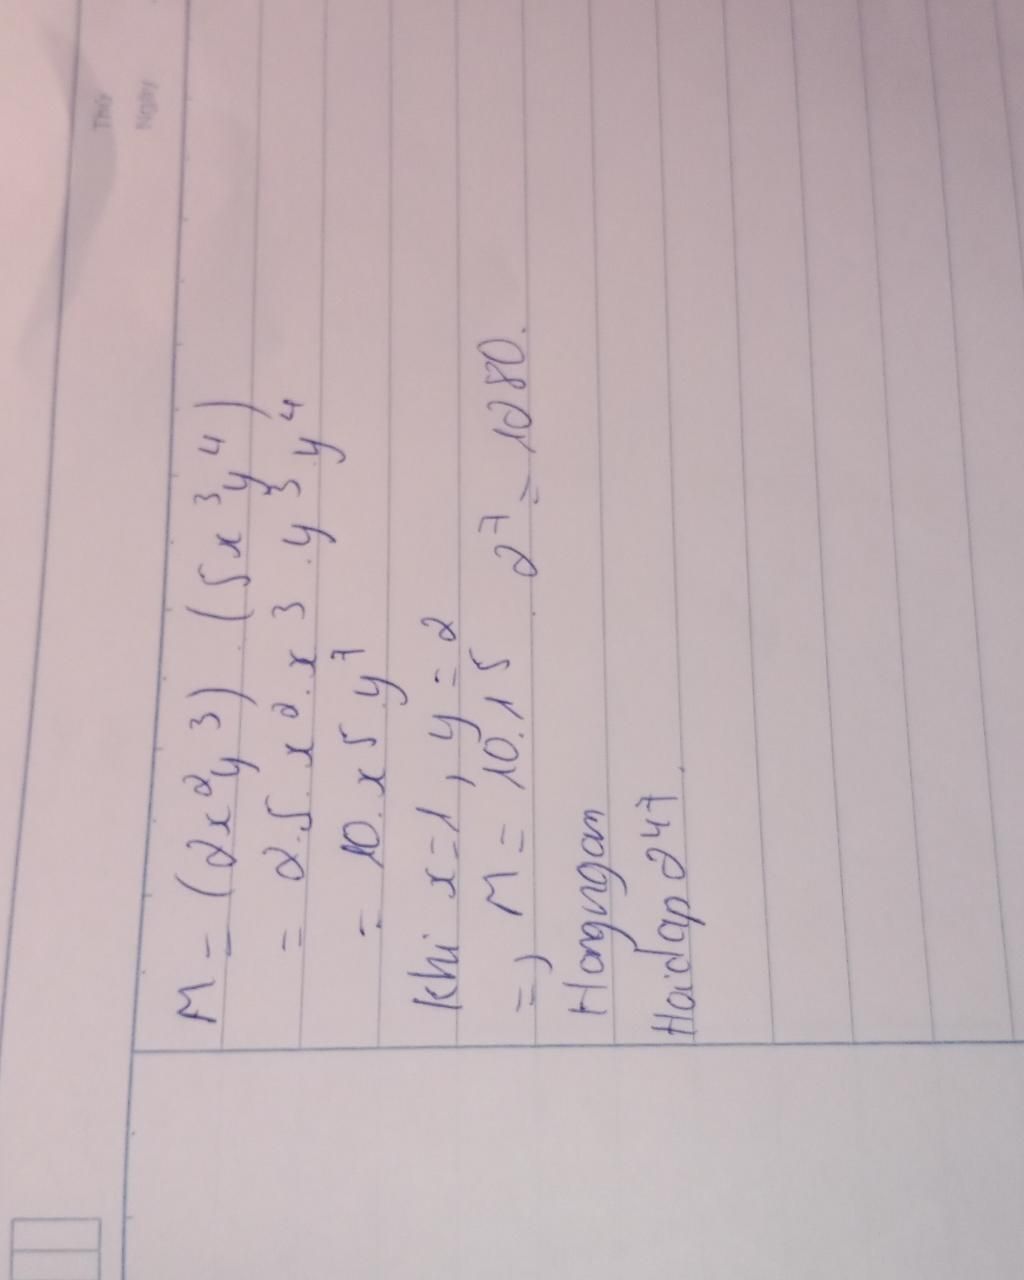 Thứ
Ngày
M = (2x²y³) . (5x³y⁴)
= 2.5.x².x³.y³.y⁴
= 10.x⁵y⁷
Khi x=1, y=2
=> M = 10.1⁵.2⁷ = 1280.
Hongngan
Hoidap247.